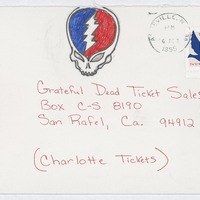 1995
Grateful Dead Ticket Sales
Box C-S 8190
San Rafel, Ca. 94912
(Charlotte Tickets)